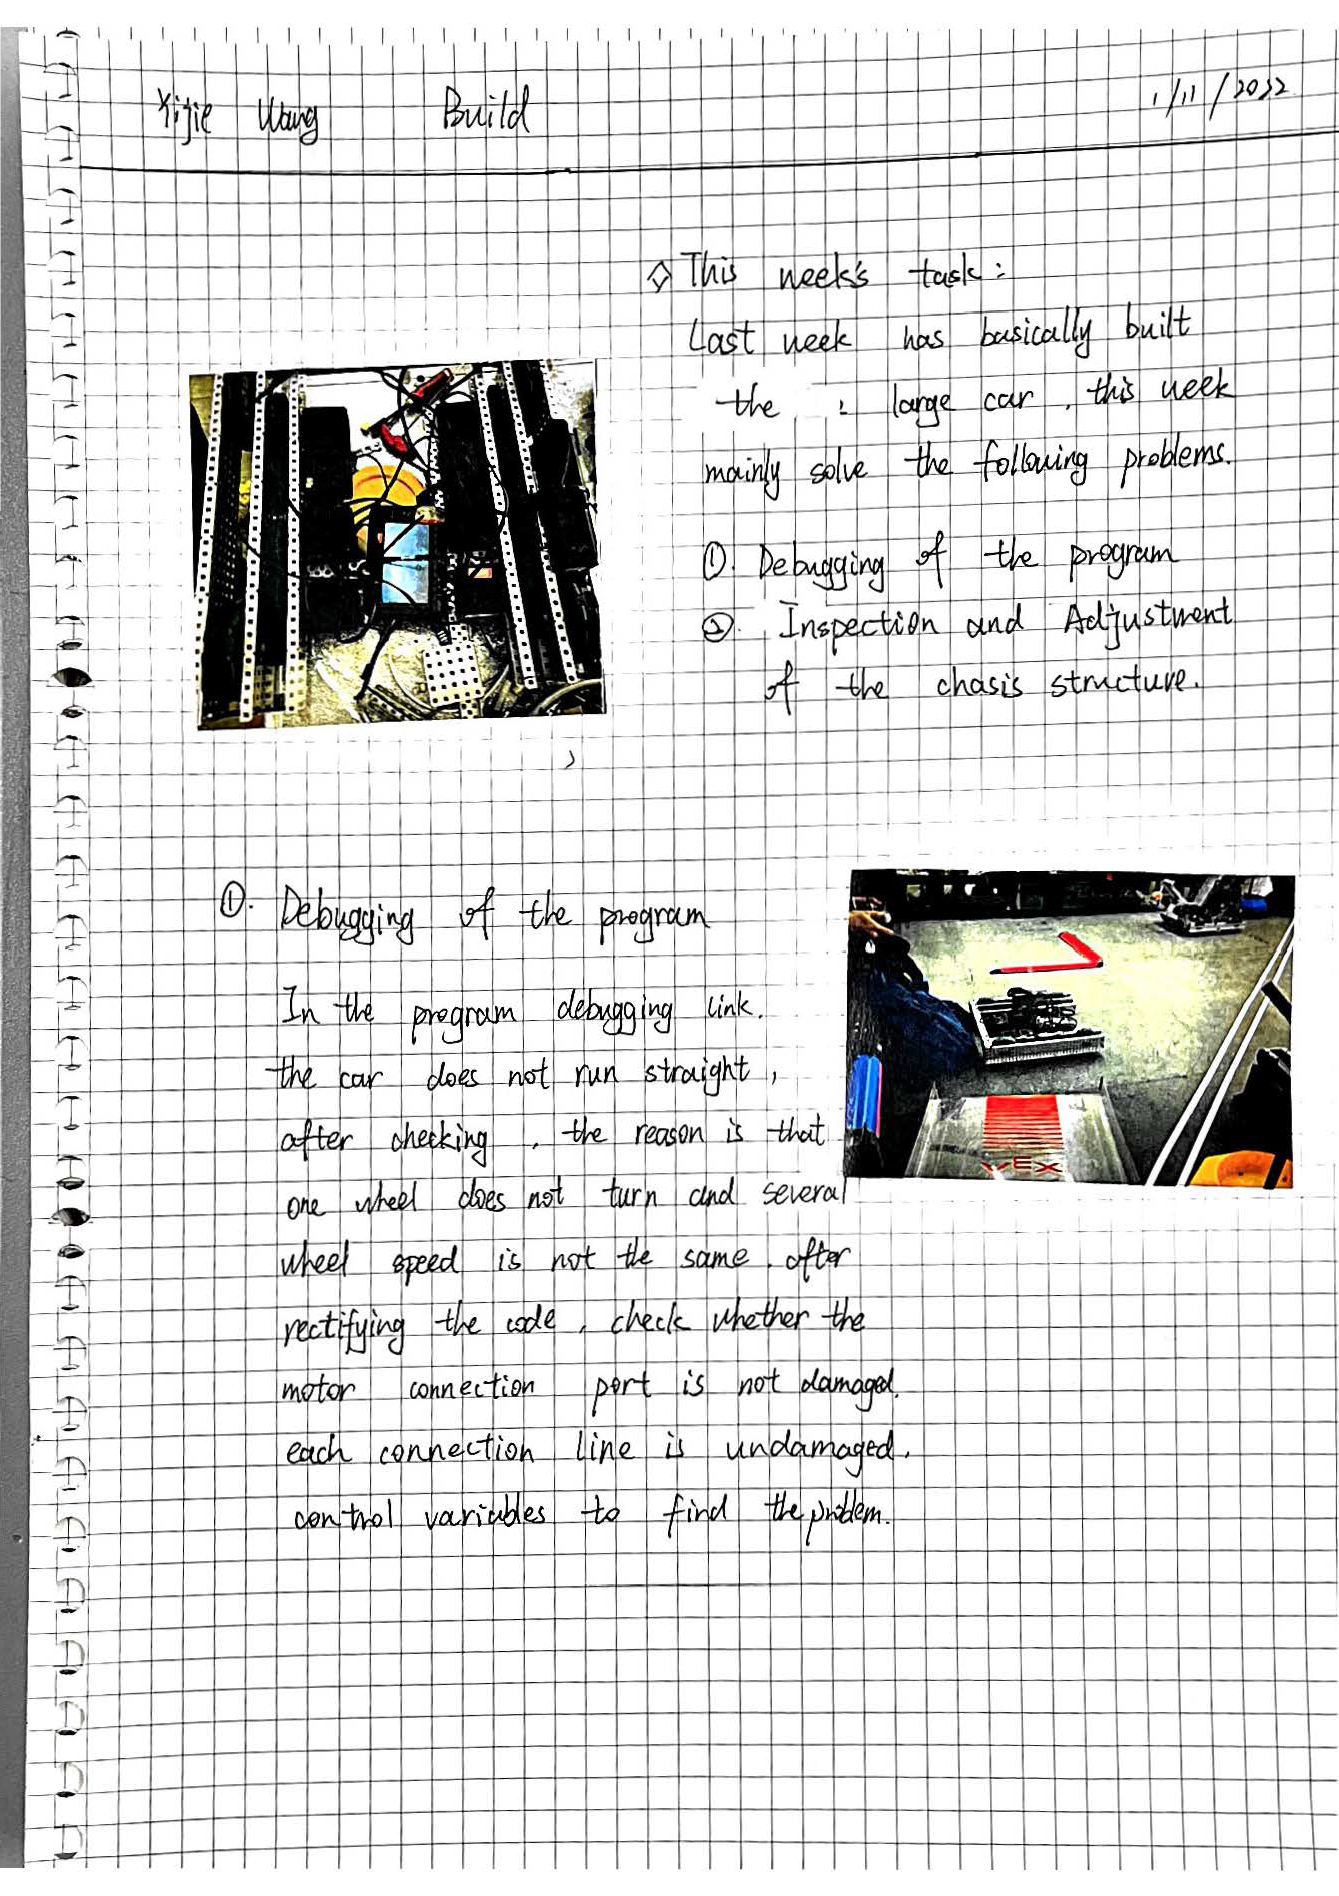 Yijie Wang Build 1/11/2022
◇ This week's task:
Last week has basically built
the : large car, this week
mainly solve the following problems.
①. Debugging of the program
②. Inspection and Adjustment
of the chasis structure.
①. Debugging of the program
In the program debugging link.
the car does not run straight,
after checking, the reason is that
one wheel does not turn and several
wheel speed is not the same. after
rectifying the code, check whether the
motor connection port is not damaged.
each connection line is undamaged.
control variables to find the problem.
VEX